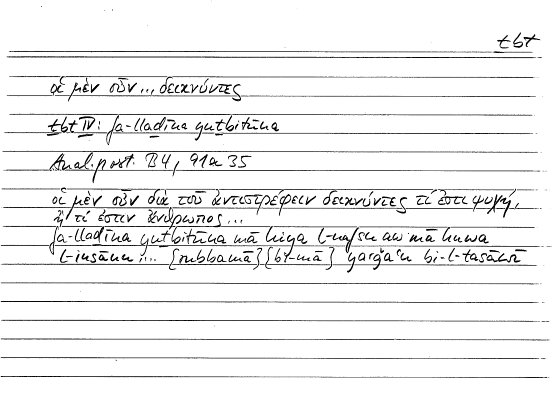 tbt
οἱ μὲν οὖν ... δεικνύντες
tbt IV: fa-lladīna yutbitūna
Anal. post. B 4, 91a 35
οἱ μὲν οὖν διὰ τοῦ ἀντιστρέφειν δεικνύντες τί ἐστι ψυχή,
ἢ τί ἐστιν ἄνθρωπος ...
fa-lladīna yutbitūna mā hiya l-nafsu aw mā huwa
l-insānu ... {rubbamā} {bi-mā} yarǧiʿu bi-l-tasāwī